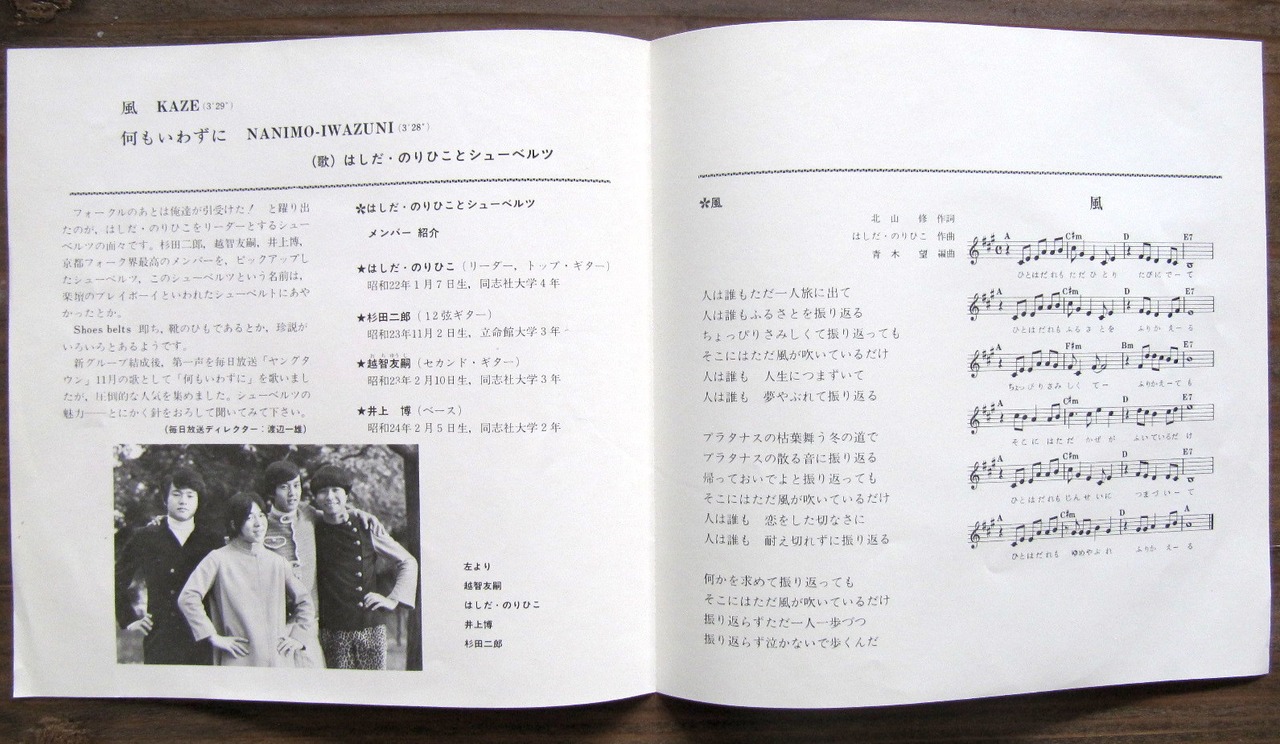 風 KAZE (3'29")
何もいわずに NANIMO-IWAZUNI (3'28")
(歌) はしだ・のりひことシューベルツ
フォークルのあとは俺達が引受けた! と躍り出
たのが、はしだ・のりひこをリーダーとするシュー
ベルツの面々です。杉田二郎、越智友嗣、井上博、
京都フォーク界最高のメンバーを、ピックアップし
たシューベルツ、このシューベルツという名前は、
楽壇のプレイボーイといわれたシューベルトにあや
かったとか。
Shoes belts 即ち、靴のひもであるとか、珍説が
いろいろとあるようです。
新グループ結成後、第一声を毎日放送「ヤングタ
ウン」11月の歌として「何もいわずに」を歌いまし
たが、圧倒的な人気を集めました。シューベルツの
魅力——とにかく針をおろして聞いてみて下さい。
(毎日放送ディレクター:渡辺一雄)
✽はしだ・のりひことシューベルツ
メンバー 紹介
★はしだ・のりひこ (リーダー, トップ・ギター)
昭和22年1月7日生, 同志社大学4年
★杉田二郎 (12弦ギター)
昭和23年11月2日生, 立命館大学3年
★越智友嗣 (セカンド・ギター)
昭和23年2月10日生, 同志社大学3年
★井上 博 (ベース)
昭和24年2月5日生, 同志社大学2年
左より
越智友嗣
はしだ・のりひこ
井上博
杉田二郎
✽風
北山 修 作詞
はしだ・のりひこ 作曲
青木 望 編曲
人は誰もただ一人旅に出て
人は誰もふるさとを振り返る
ちょっぴりさみしくて振り返っても
そこにはただ風が吹いているだけ
人は誰も 人生につまずいて
人は誰も 夢やぶれて振り返る
プラタナスの枯葉舞う冬の道で
プラタナスの散る音に振り返る
帰っておいでよと振り返っても
そこにはただ風が吹いているだけ
人は誰も 恋をした切なさに
人は誰も 耐え切れずに振り返る
何かを求めて振り返っても
そこにはただ風が吹いているだけ
振り返らずただ一人一歩づつ
振り返らず泣かないで歩くんだ
風
A C#m D E7
ひとはだれも ただ ひとり たびに でーて
A C#m D E7
ひとはだれも ふるさとを ふりか えーる
A F#m Bm E7
ちょっぴりさみ しく てー ふりかえーて も
A C#m D E7
そこに はただ かぜが ふいているだ け
A C#m D E7
ひとはだれも じんせいに つまづ いーて
A C#m D A
ひとはだれも ゆめやぶれ ふりか えーる